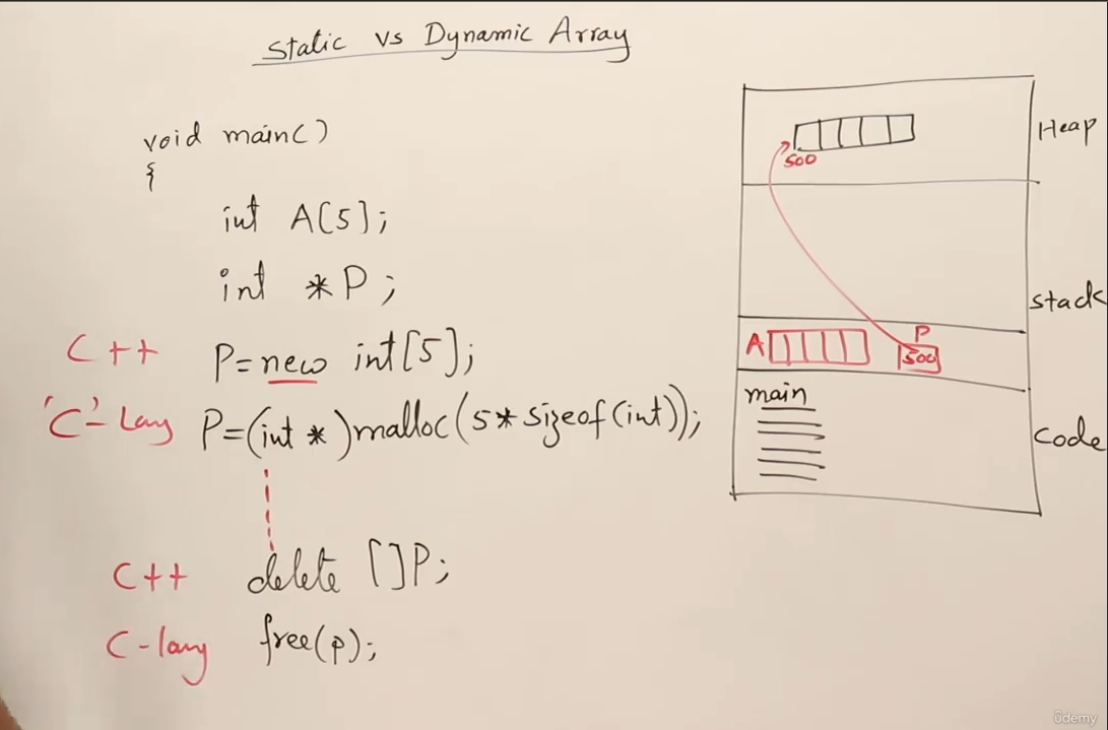 Static vs Dynamic Array
void main()
{
int A[5];
int *P;
C++ P=new int[5];
'C'-Lang P=(int *)malloc(5*sizeof(int));
C++ delete []P;
C-lang free(p);
Heap
500
Stack
A
P
500
main
Code
ûdemy